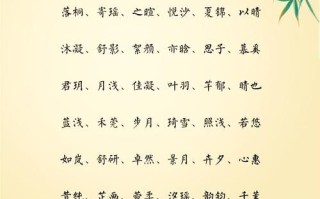 落桐、寄瑶、之暄、悦沙、夏锦、以晴
沐凝、舒影、絮颜、亦晗、思子、慕奚
君玥、月浅、佳凝、叶羽、芊郁、晴也
蓝浅、禾莞、步月、琦雪、照浅、若悠
如岚、舒研、卓然、景月、卉夕、心惠